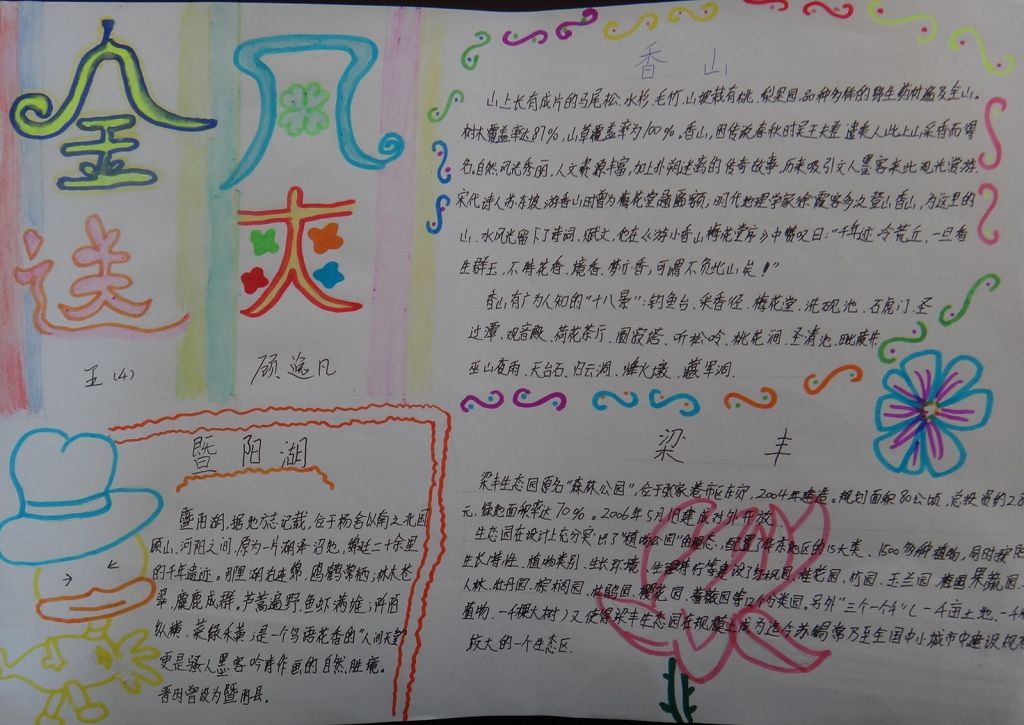 金风
送爽
五(4)
顾逸凡
香山
山上长有成片的马尾松、水杉、毛竹,山坡栽有桃、梨果园,品种多样的野生药材遍及全山。
树木覆盖率达87%,山草覆盖率为100%。香山,因传说春秋时吴王夫差遣美人此上山采香而得
名。自然风光秀丽,人文资源丰富,加上扑朔迷离的传奇故事,历来吸引文人墨客来此观光赏游.
宋代诗人苏东坡游香山时曾为梅花堂题匾额;明代地理学家徐霞客多次登山香山,为这里的
山、水风光留下了诗词、赋文,他在《游小香山梅花堂序》中赞叹曰:“千年迹冷荒丘,一旦香
生群玉,不特花香、境香、梦亦香,可谓不负此山矣!”
香山有广为人知的“十八景”:钓鱼台、采香径、梅花堂、洗砚池、石虎门、圣
过潭、观音殿、荷花茶厅、圆寂塔、听松吟、桃花涧、圣清池、毗陵井
巫山夜雨、天台石、白云洞、烽火墩、藏军洞.
暨阳湖
暨阳湖,据地方志记载,位于杨舍以南之北固
顾山、河阳之间,原为一片湖泽沼地,绵延二十余里
的千年遗迹。那里湖泊连绵,鸥鹤常栖;林木苍
翠,麋鹿成群,芦蒿遍野,鱼虾满塘;阡陌
纵横,菜绿禾黄;是一个鸟语花香的“人间天堂”
更是骚人墨客吟诗作画的自然胜境。
晋时曾设为暨阳县。
梁丰
梁丰生态园原名“森林公园”,位于张家港市区东郊,2004年建造。规划面积80公顷,总投资约2.8
元,绿地面积率达70%。2006年5月1日建成对外开放.
生态园在设计上充分突出了“植物公园”的概念,配置了华东地区的15大类、1500多种植物,同时按照
生长特性、植物类别、生长环境、生理特行等建设了纺织园、桂花园、竹园、玉兰园、
人林、牡丹园、棕榈园、杜鹃园、樱花园、蔷薇园等12个分类园。另外“三个一千“(一千亩土地、一千种
植物、一千棵大树)又使得梁丰生态园在规模上成为迄今苏锡常乃至全国中小城市中建设规模
较大的一个生态区.